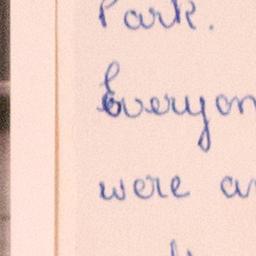 Park.
Everyon
were a